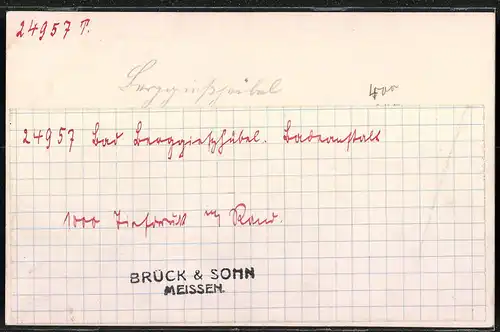 24957 T.
Berggießhübel
400
24957 Bad Berggießhübel. Badeanstalt
1000 Tiefdruck m/ Rand.
BRÜCK & SOHN
MEISSEN.